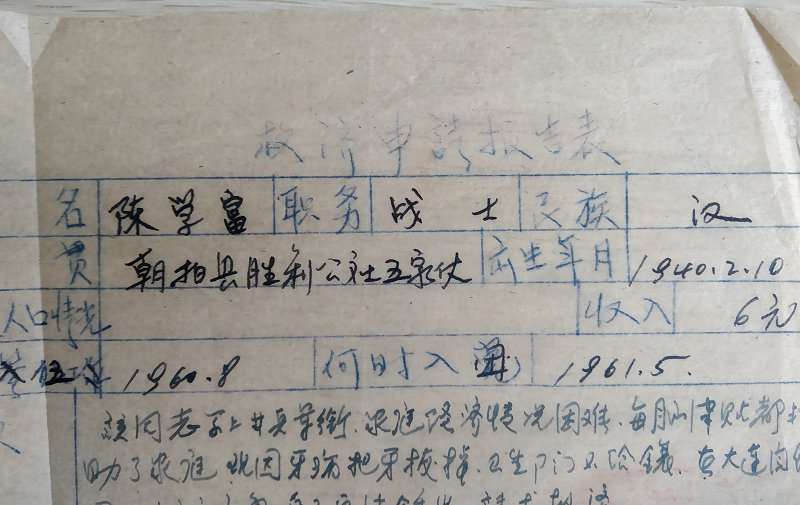 救济申请报告表
名 陈学富 职务 战士 民族 汉
贯 朝阳县胜利公社五家伙 出生年月 1940.2.10
人口情况 收入 6元
参加工作 1960.8 何时入 1961.5.
该同志系上士军衔.家庭经济情况困难.每月的津贴都
助了家庭 现因牙痛把牙拔掉.卫生部门不给镶.